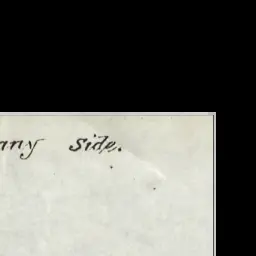 any side.